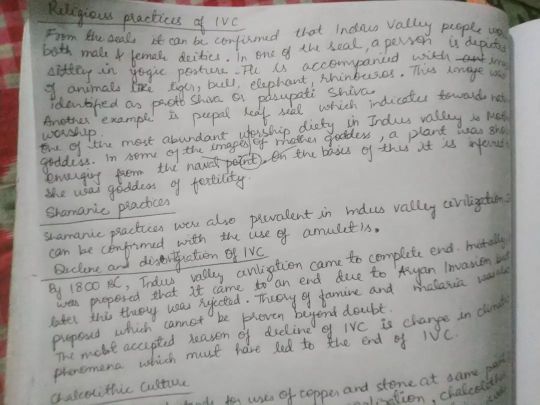 Religious practices of IVC
From the seals it can be confirmed that Indus Valley people
both male & female deities. In one of the seal, a person is depicted
sitting in yogic posture. He is accompanied with
of animals like tiger, bull, elephant, rhinoceros. This image was
identified as proto Shiva or pasupati Shiva.
Another example is peepal leaf seal which indicates towards
worship.
One of the most abundant worship diety in Indus valley is
goddess. In some of the images of mother goddess, a plant was
emerging from the naval point. On the basis of this it is
she was goddess of fertility.
Shamanic practices
Shamanic practices were also prevalent in Indus valley civilization
can be confirmed with the use of amulets.
Decline and of IVC
By 1800 BC, Indus valley civilization came to complete end.
was proposed that it came to an end due to Aryan Invasion but
later this theory was rejected. Theory of famine and malaria
proposed which cannot be proven beyond doubt.
The most accepted reason of decline of IVC is change in
phenomena which must have led to the end of IVC.
Chalcolithic Culture
for uses of copper and stone at same